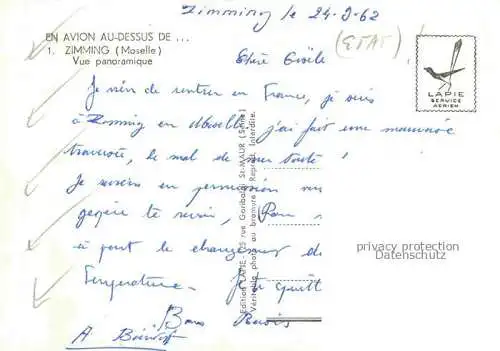 Zimming le 24-9-62
EN AVION AU-DESSUS DE ...
1. ZIMMING (Moselle)
Vue panoramique
(ETAT)
LAPIE
SERVICE
AERIEN
Chère Gisèle
Je viens de rentrer en France, je suis
à Zimming en Moselle, j'ai fait une mauvaise
traversée, le mal de mer toute !
Je serais en permission
espère te revoir, Paris
à part le changement de
Température. Je te quitte
Bons Baisers
A Bientôt
Edition LAPIE - rue Garibaldi St-MAUR (Seine)
Véritable photo au bromure - Reprod. interdite.
privacy protection
Datenschutz